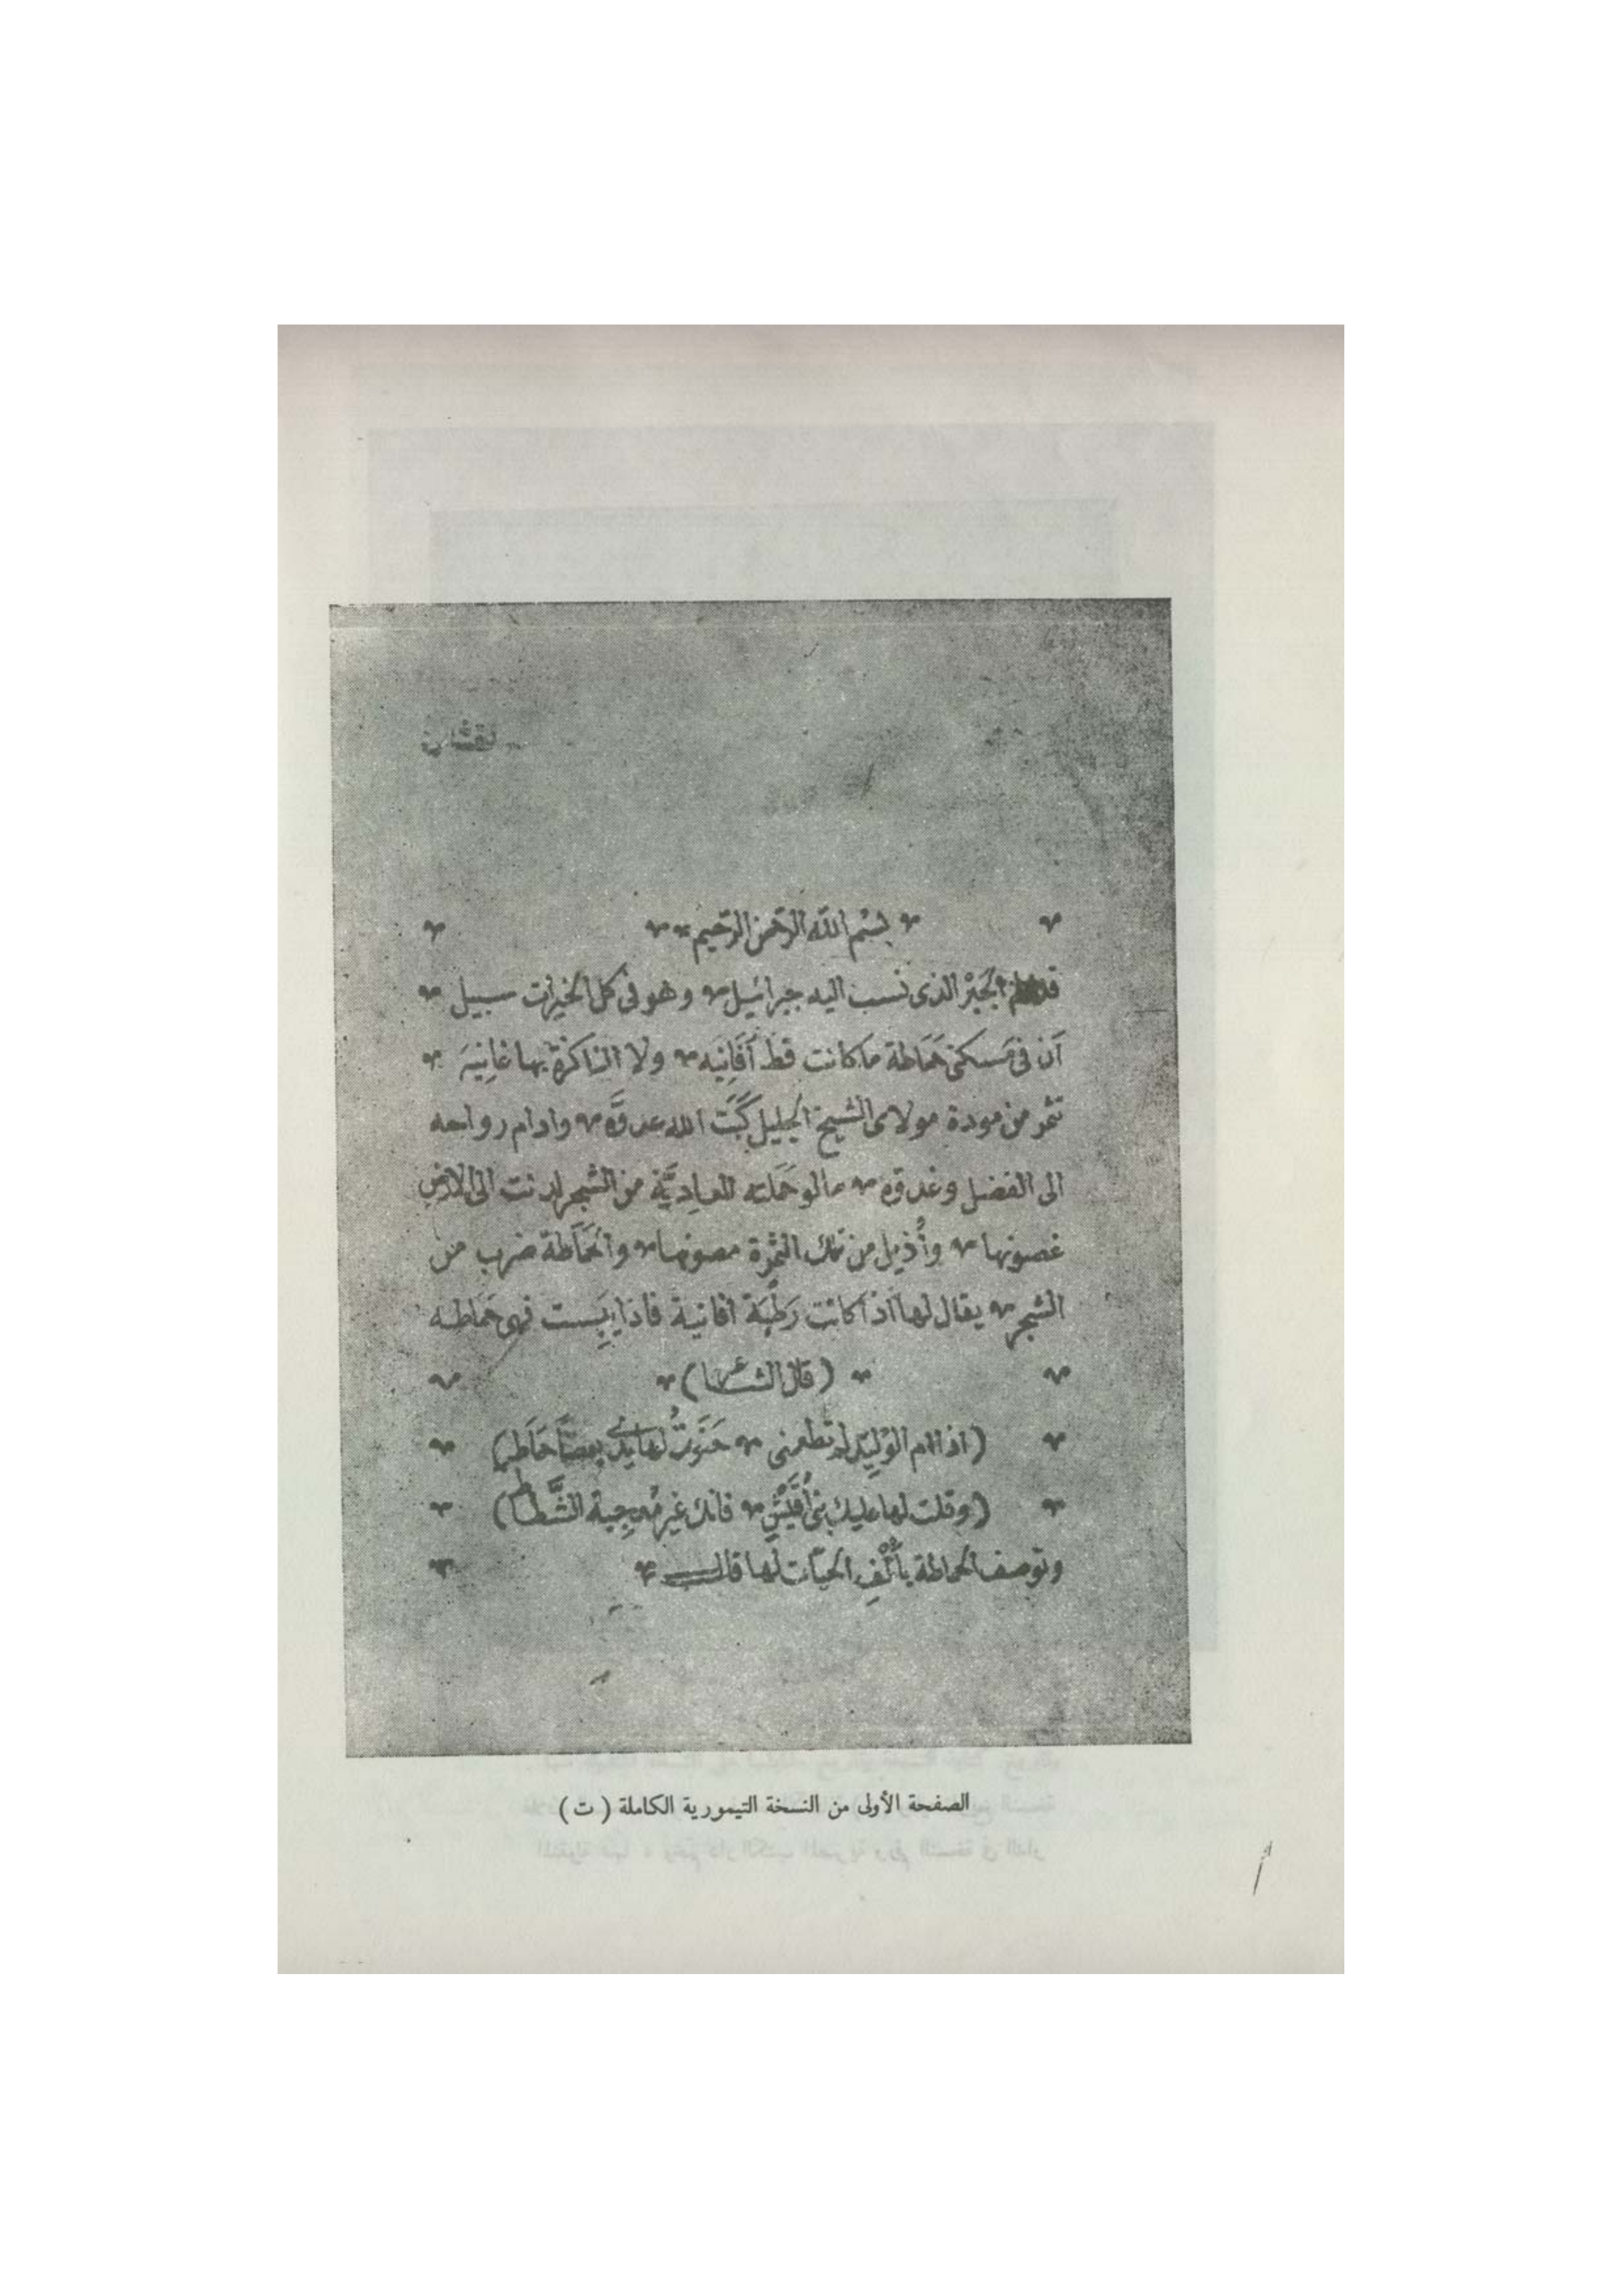 بسْم اللّه الرّحمن الرّحيم
قد علم الجَبْر الذى نسب اليه جبرائيل وهو فى كل الخيرات سبيل
أن فى مَسكنى حَمَاطة ما كانت قط أفَانِيَه ولا الناكزة بها غانِيَه
تثمر من مودة مولاى الشيخ الجليل كَبَتَ الله عدوَّه وادام رواحه
الى الفضل وغدوّه ما لو حَمَلته العاديَّة من الشجر لدنت الى الارض
غصونها وأُذيل من تلك الثمرة مصونها والحَمَاطة ضرب من
الشجر يقال لها اذا كانت رَطْبَة افانية فاذا يبَست فهى حَمَاطه
(قال الشاعر)
(اذا ام الوُلِيّد لم تطعنى حَنَوتُ لها يدى بعصَا حَمَاطِ)
(وقلت لها عليك بنى أُقَيْش فانك غير مُعجِبة الشَّطَاط)
وتوصف الحماطة بأُلْفِ الحيّات لها قال
الصفحة الأولى من النسخة التيمورية الكاملة ( ت )